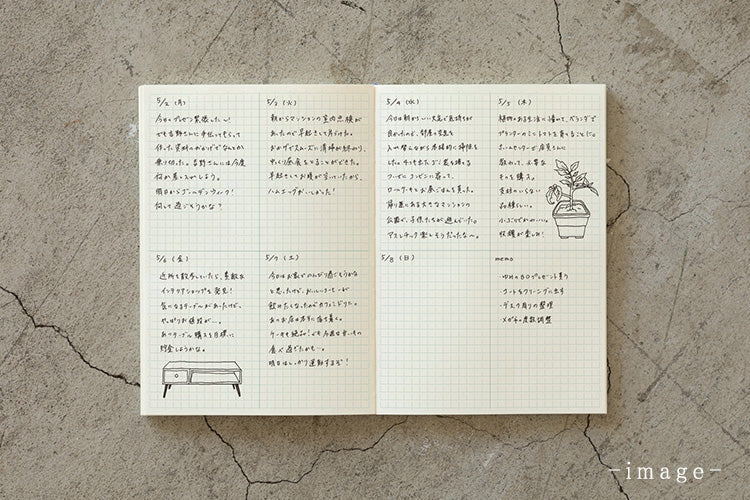 5/2 (月)
今日のプレゼン緊張した〜!
でも吉野さんに手伝ってもらって
作った資料のおかげでなんとか
乗り切った。吉野さんには今度
何かお礼しよう。
明日からゴールデンウィーク!
何して過ごそうかな?
5/3 (火)
朝からマンションの室内点検が
あったので早起きして片づけた。
おかげでスムーズに清掃が終わり、
ゆっくり昼食をとることができた。
早起きしてお腹が空いていたから、
ハムエッグがおいしかった!
5/4 (水)
今日は朝からいい天気で気持ちが
良かったので、部屋の空気を
入れ替えしながら本格的に掃除を
した。
ついでにコンビニに寄って、
コーヒーを買った。
帰り道にある大きなマンションの
公園で、子供たちが遊んでいた。
アスレチック楽しそうだったな〜。
5/5 (木)
植物のある生活に憧れて、ベランダで
プランターのミニトマトを育てることに。
ホームセンターで店員さんに
教わって、必要な
ものを購入。
支柱のいらない
品種らしい。
小ぶりでかわいい。
収穫が楽しみ!
5/6 (金)
近所を散歩していたら、素敵な
インテリアショップを発見!
気になるテーブルがあったけど、
やっぱりお値段が…。
あのテーブル購入を目標に
貯金しようかな。
5/7 (土)
今日はお家でのんびり過ごそうかな
と思ったけど、おいしいコーヒーが
飲みたくなったのでカフェに行った。
あのお店は本当に落ち着く。
ケーキも絶品!でも今週は甘いもの
食べ過ぎたかも…。
明日はしっかり運動するぞ!
5/8 (日)
memo
・ゆみのBDプレゼント買う
・コートをクリーニングに出す
・デスク周りの整理
・メガネの度数調整
-image-